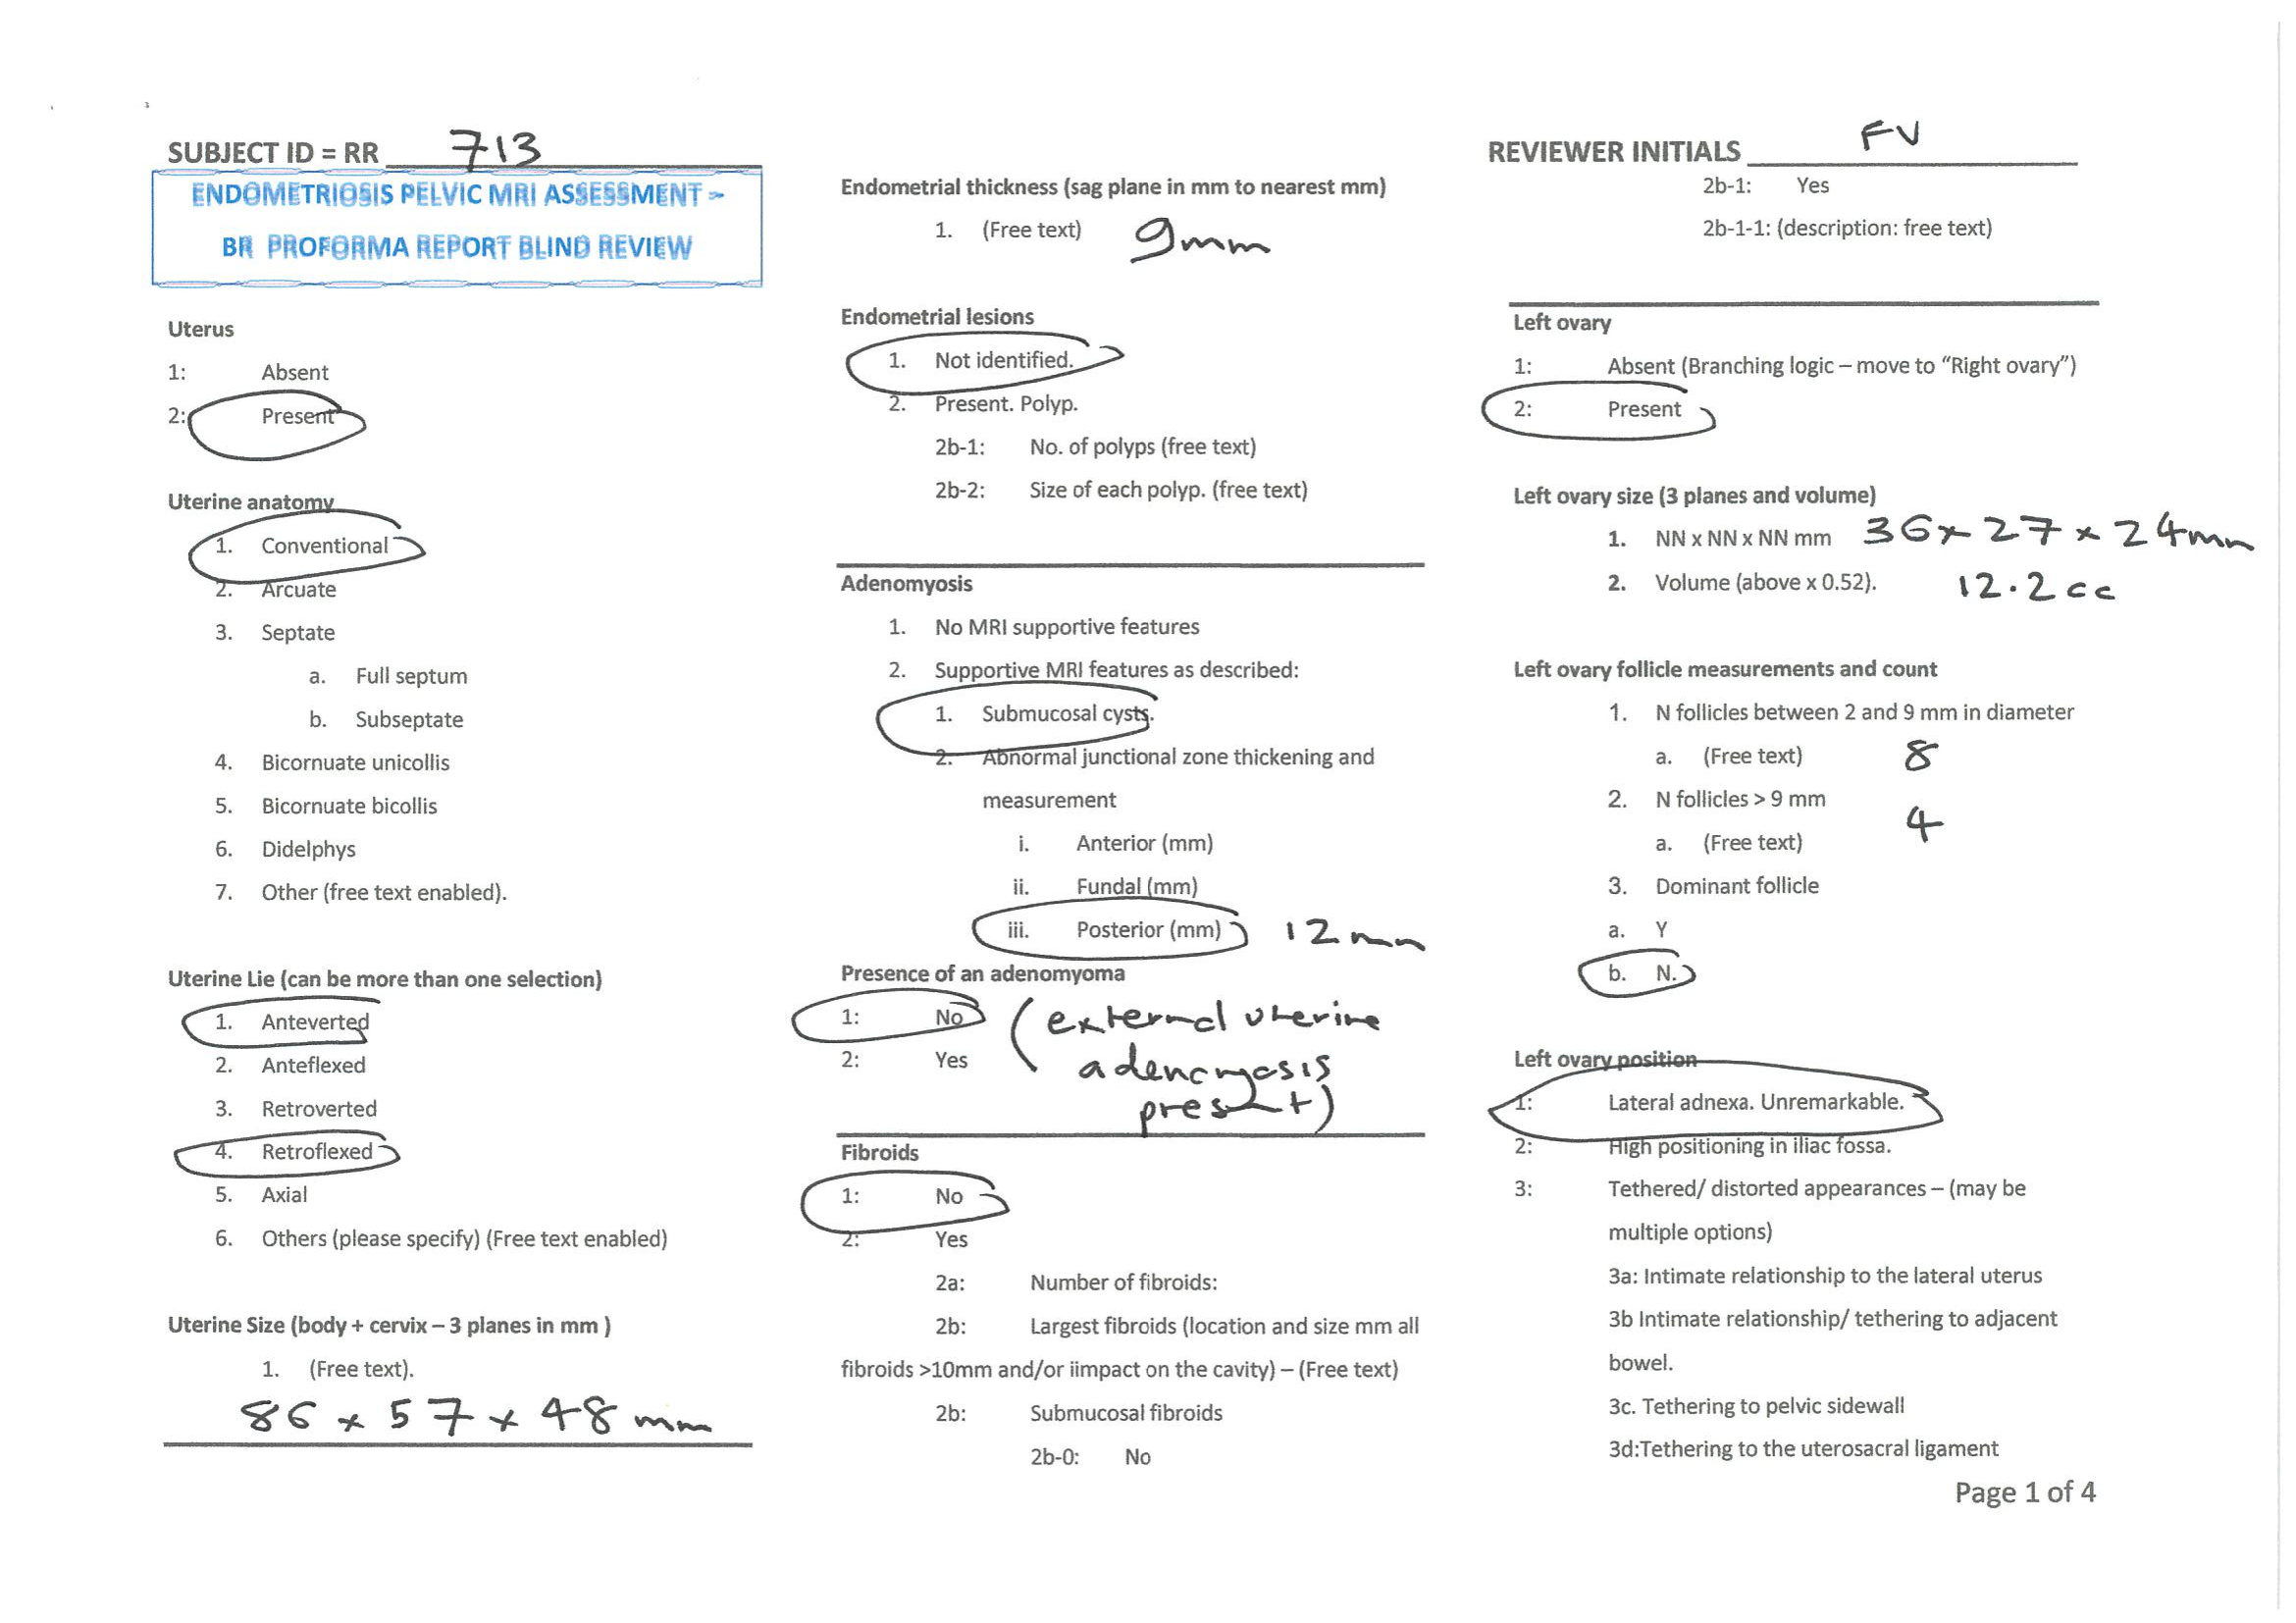 SUBJECT ID = RR 713
ENDOMETRIOSIS PELVIC MRI ASSESSMENT –
BR PROFORMA REPORT BLIND REVIEW
Uterus
1: Absent
2: Present
Uterine anatomy
1. Conventional
2. Arcuate
3. Septate
a. Full septum
b. Subseptate
4. Bicornuate unicollis
5. Bicornuate bicollis
6. Didelphys
7. Other (free text enabled).
Uterine Lie (can be more than one selection)
1. Anteverted
2. Anteflexed
3. Retroverted
4. Retroflexed
5. Axial
6. Others (please specify) (Free text enabled)
Uterine Size (body + cervix – 3 planes in mm )
1. (Free text).
86 x 57 x 48 mm
Endometrial thickness (sag plane in mm to nearest mm)
1. (Free text) 9mm
Endometrial lesions
1. Not identified.
2. Present. Polyp.
2b-1: No. of polyps (free text)
2b-2: Size of each polyp. (free text)
Adenomyosis
1. No MRI supportive features
2. Supportive MRI features as described:
1. Submucosal cysts.
2. Abnormal junctional zone thickening and
measurement
i. Anterior (mm)
ii. Fundal (mm)
iii. Posterior (mm) 12 mm
Presence of an adenomyoma
1: No (external uterine
2: Yes adenomyosis
present)
Fibroids
1: No
2: Yes
2a: Number of fibroids:
2b: Largest fibroids (location and size mm all
fibroids >10mm and/or iimpact on the cavity) – (Free text)
2b: Submucosal fibroids
2b-0: No
REVIEWER INITIALS FV
2b-1: Yes
2b-1-1: (description: free text)
Left ovary
1: Absent (Branching logic – move to “Right ovary”)
2: Present
Left ovary size (3 planes and volume)
1. NN x NN x NN mm 36x 27 x 24mm
2. Volume (above x 0.52). 12.2 cc
Left ovary follicle measurements and count
1. N follicles between 2 and 9 mm in diameter
a. (Free text) 8
2. N follicles > 9 mm
4
a. (Free text)
3. Dominant follicle
a. Y
b. N.
Left ovary position
1: Lateral adnexa. Unremarkable.
2: High positioning in iliac fossa.
3: Tethered/ distorted appearances – (may be
multiple options)
3a: Intimate relationship to the lateral uterus
3b Intimate relationship/ tethering to adjacent
bowel.
3c. Tethering to pelvic sidewall
3d:Tethering to the uterosacral ligament
Page 1 of 4